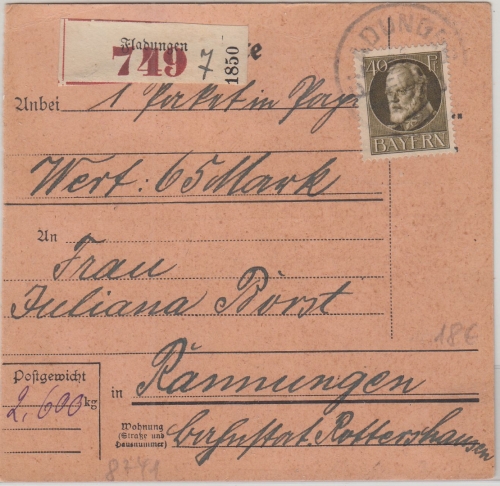 Fladungen
749 7
1850
te
FLADUNGEN
40 Pf
BAYERN
Anbei 1 Paket in Papi
Wert: 65 Mark
An
Frau
Juliana Börst
18€
Postgewicht
2,600 kg
in Rannungen
Wohnung
(Straße und
Hausnummer)
Bahnstat. Rottershausen
8741